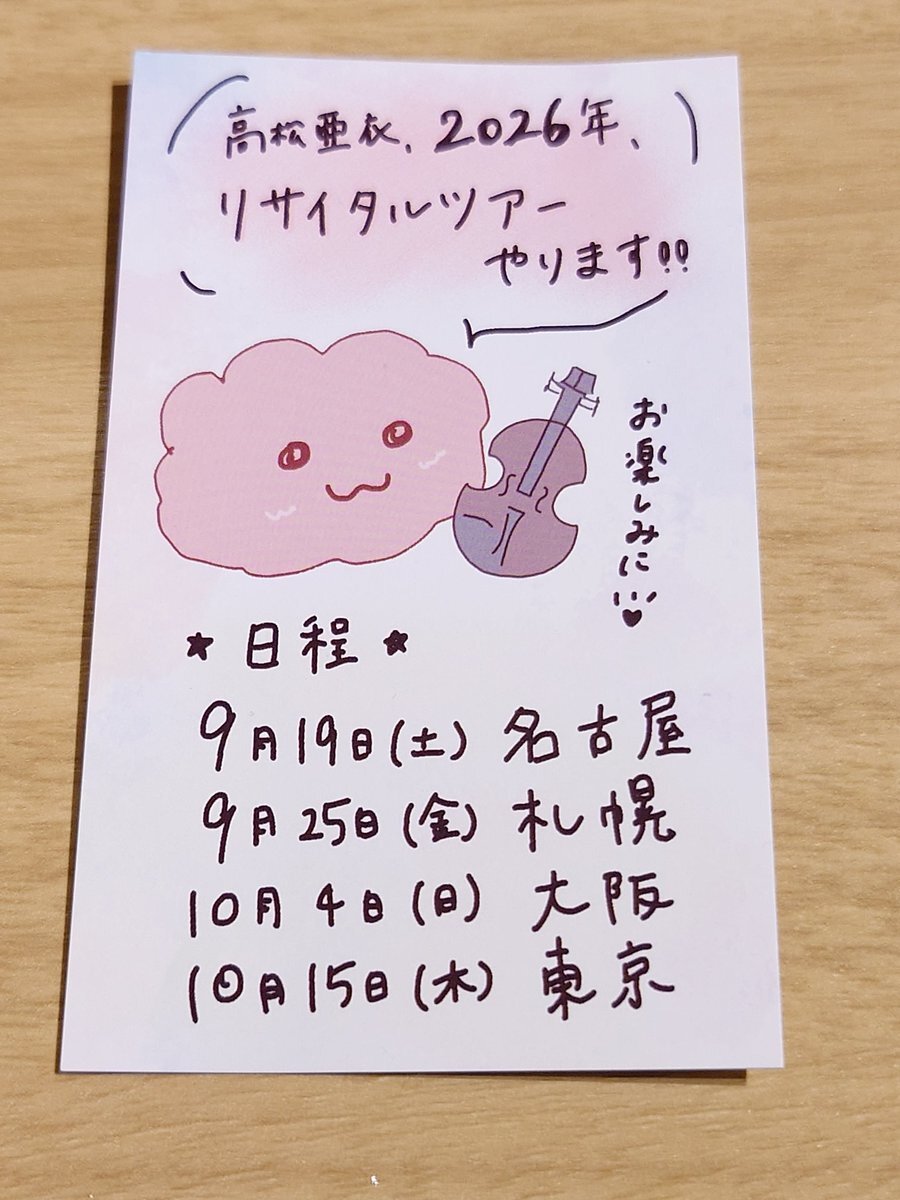 高松亜衣、2026年、
リサイタルツアー
やります!!
お楽しみに…♥
★日程★
9月19日(土) 名古屋
9月25日(金) 札幌
10月4日(日) 大阪
10月15日(木) 東京